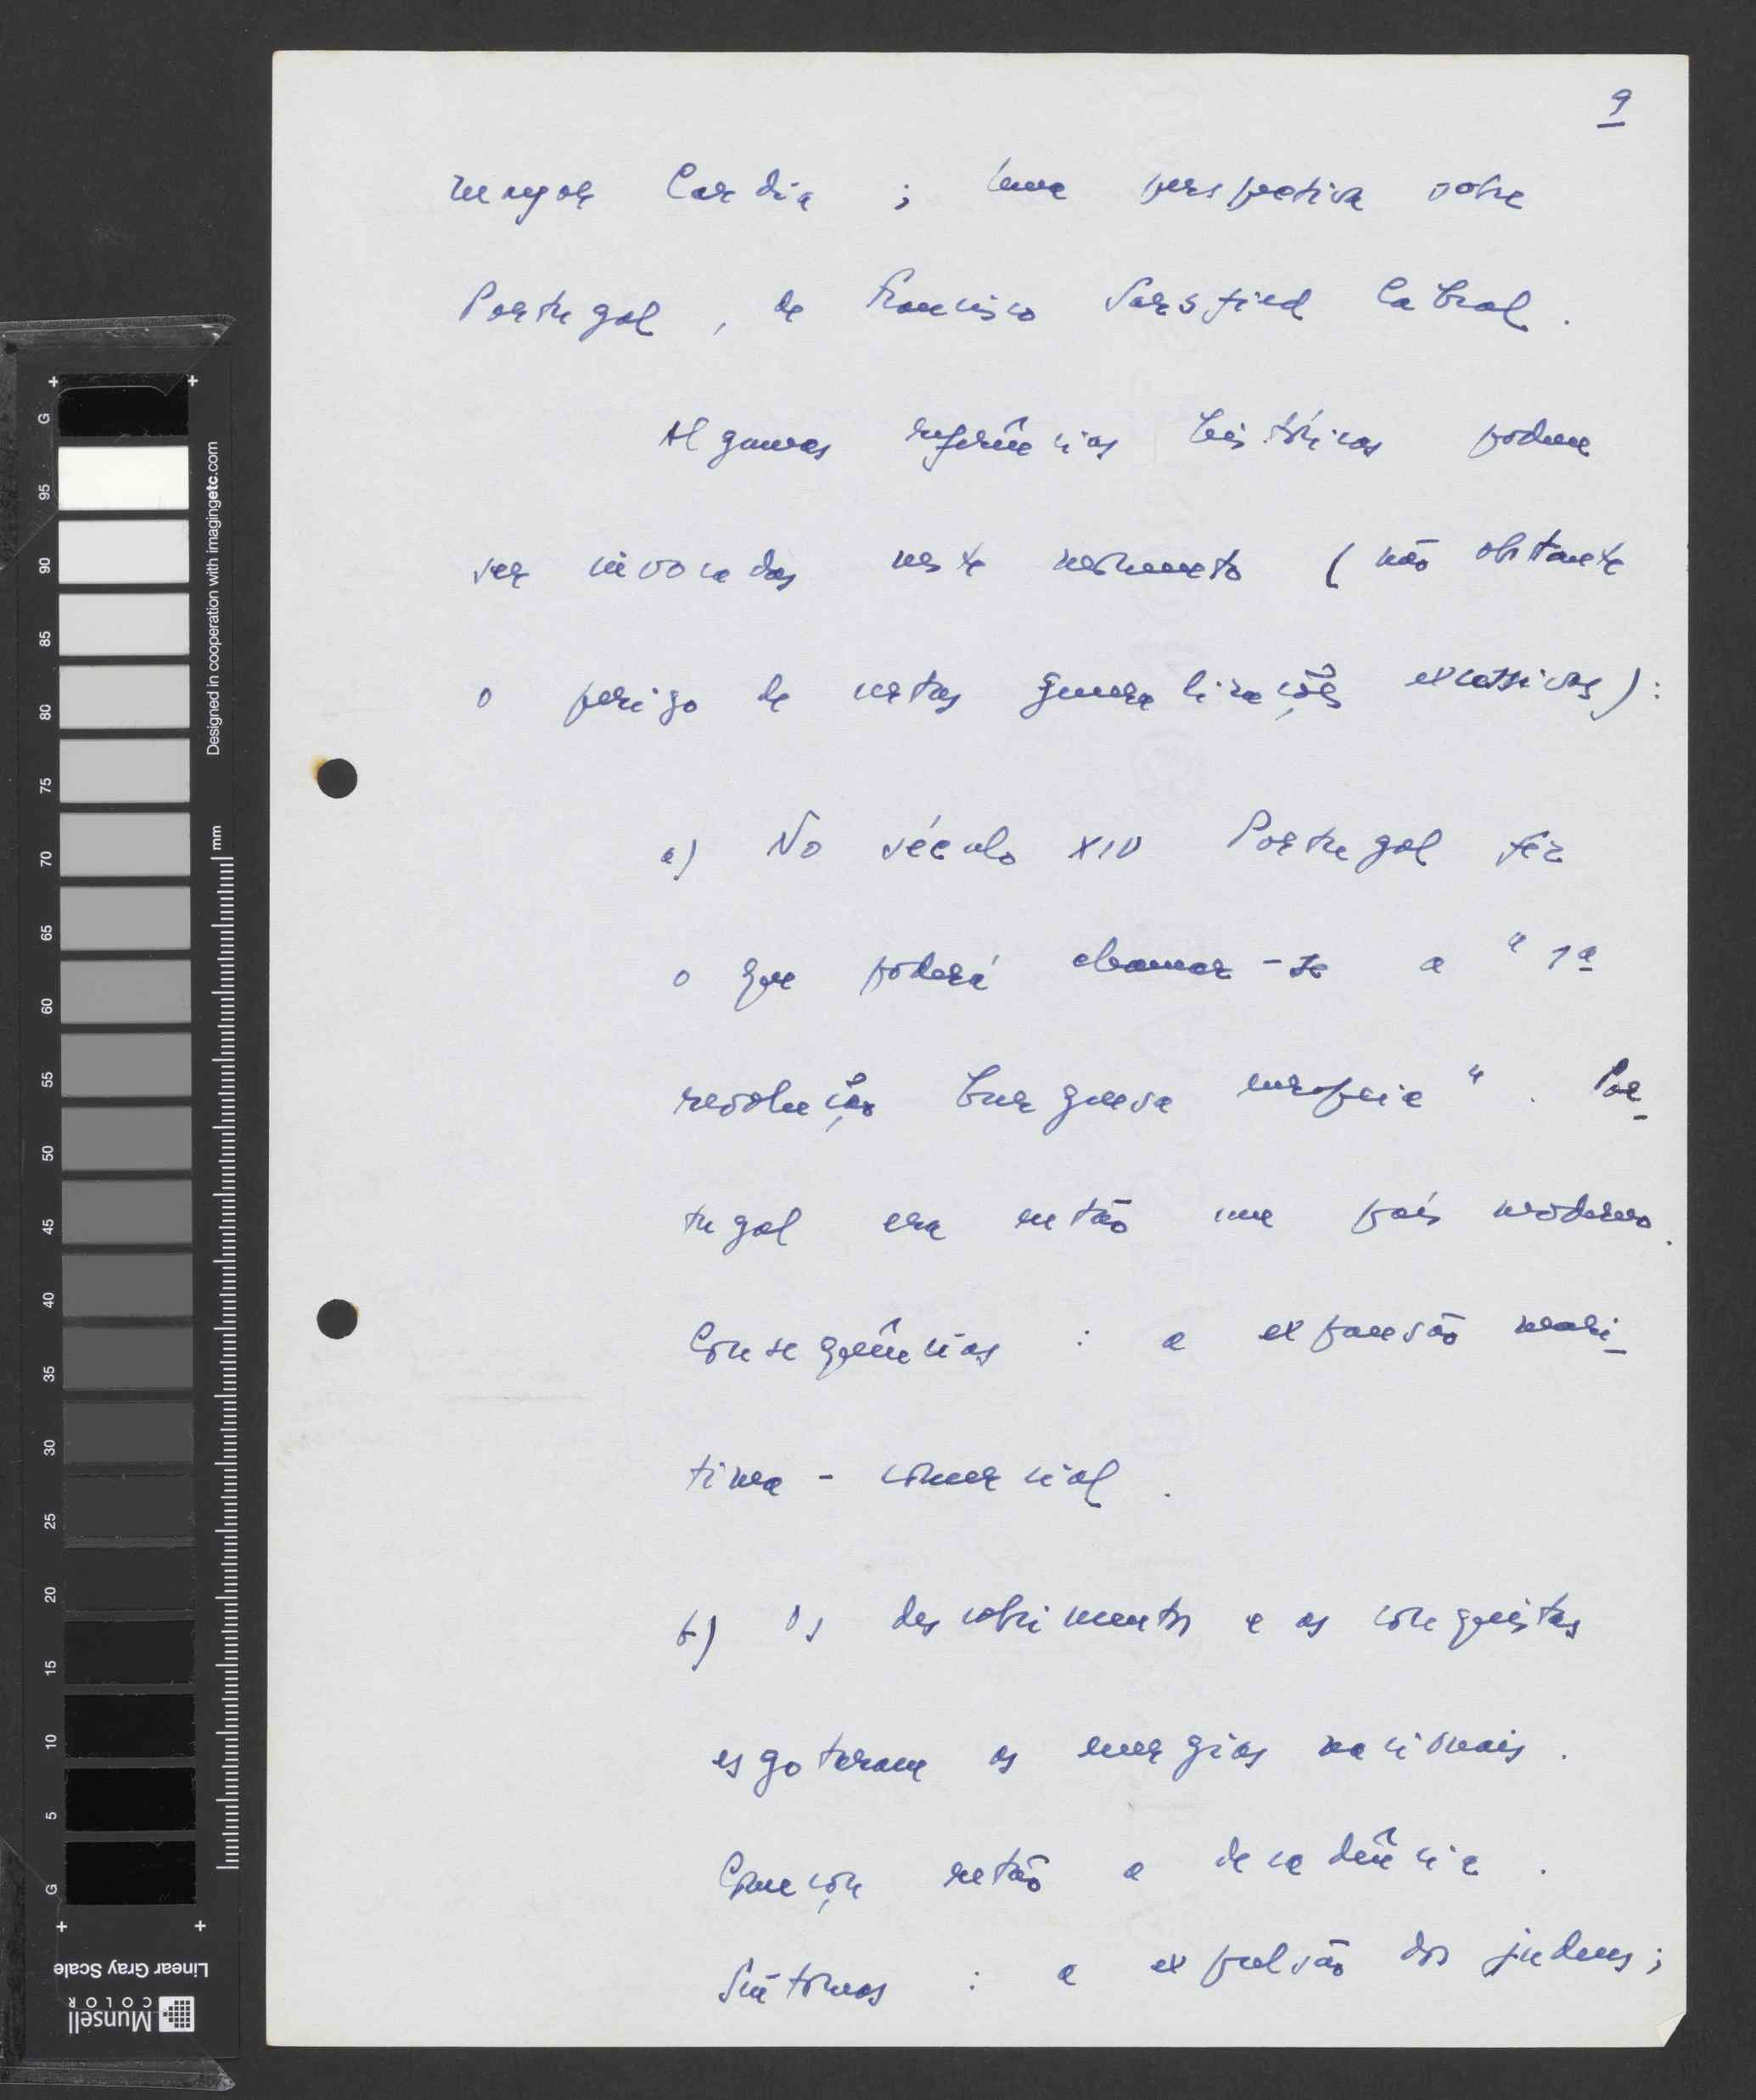 9
G
95
90
85
80
75
70
65
60
55
50
45
40
35
30
25
20
15
10
5
G
Designed in cooperation with imagingetc.com
mm
Linear Gray Scale
Munsell
COLOR
Cardia ; Uma perspectiva sobre
Portugal , de Francisco Sarsfield Cabral .
Algumas referências históricas podem
ser invocadas neste momento ( não obstante
o perigo de certas generalizações excessivas ) :
a) No século XIV Portugal fez
o que poderá chamar-se a " 1ª
revolução burguesa europeia " . Por-
tugal era então um país moderno .
Consequências : a expansão marí-
tima - comercial .
b) Os descobrimentos e as conquistas
esgotaram as energias nacionais .
Começou então a decadência .
Sintomas : a expulsão dos judeus ;